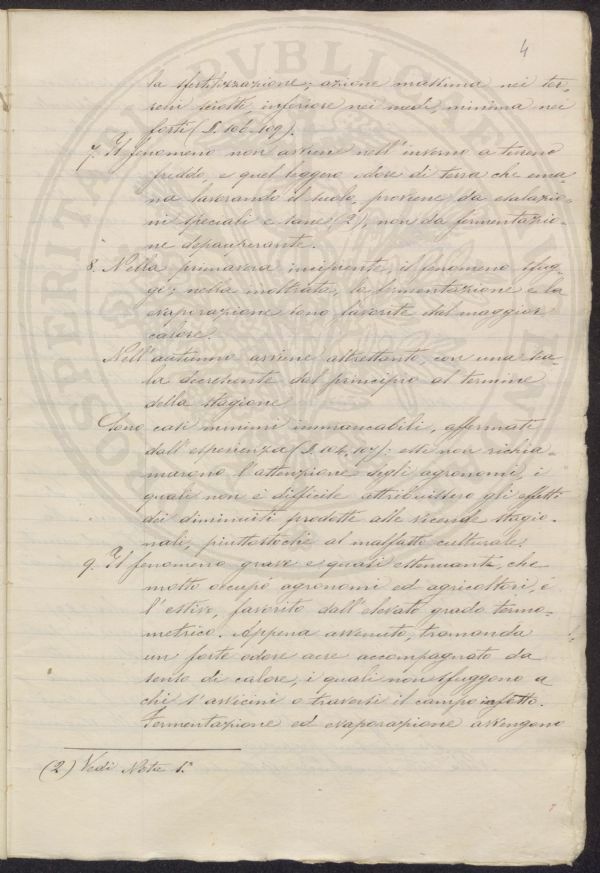 4
la sfertilizzazione; azione massima nei ter-
reni sciolti, inferiore nei medi, minima nei
forti (§. 106. 109).
7. Il fenomeno non avviene nell'inverno a terreno
freddo, e quel leggero odore di terra che ema-
na lavorando il suolo, proviene da esalazio-
ni speciali e sane (2), non da fermentazio-
ne depauperante.
8. Nella primavera incipiente, il fenomeno sfug-
ge; nella inoltrata, la fermentazione e la
evaporazione sono favorite dal maggior
calore.
Nell'autunno avviene altrettanto, con una sca-
la decrescente dal principio al termine
della stagione.
Sono casi minimi immancabili, affermati
dall'esperienza (§. 104, 107): essi non richia-
marono l'attenzione degli agronomi, i
quali non è difficile attribuissero gli effetti
dei diminuiti prodotti alle vicende stagio-
nali, piuttostochè al malfatto culturale.
9. Il fenomeno grave e quasi estenuante, che
molto occupò agronomi ed agricoltori, è
l'estivo, favorito dall'elevato grado termo-
metrico. Appena avvenuto, tramanda
un forte odore acre accompagnato da
senso di calore, i quali non sfuggono a
chi s'avvicini o traversi il campo infetto.
Fermentazione ed evaporazione avvengono
(2) Vedi Nota 1.a
PROSPERITÀ PUBBLICA